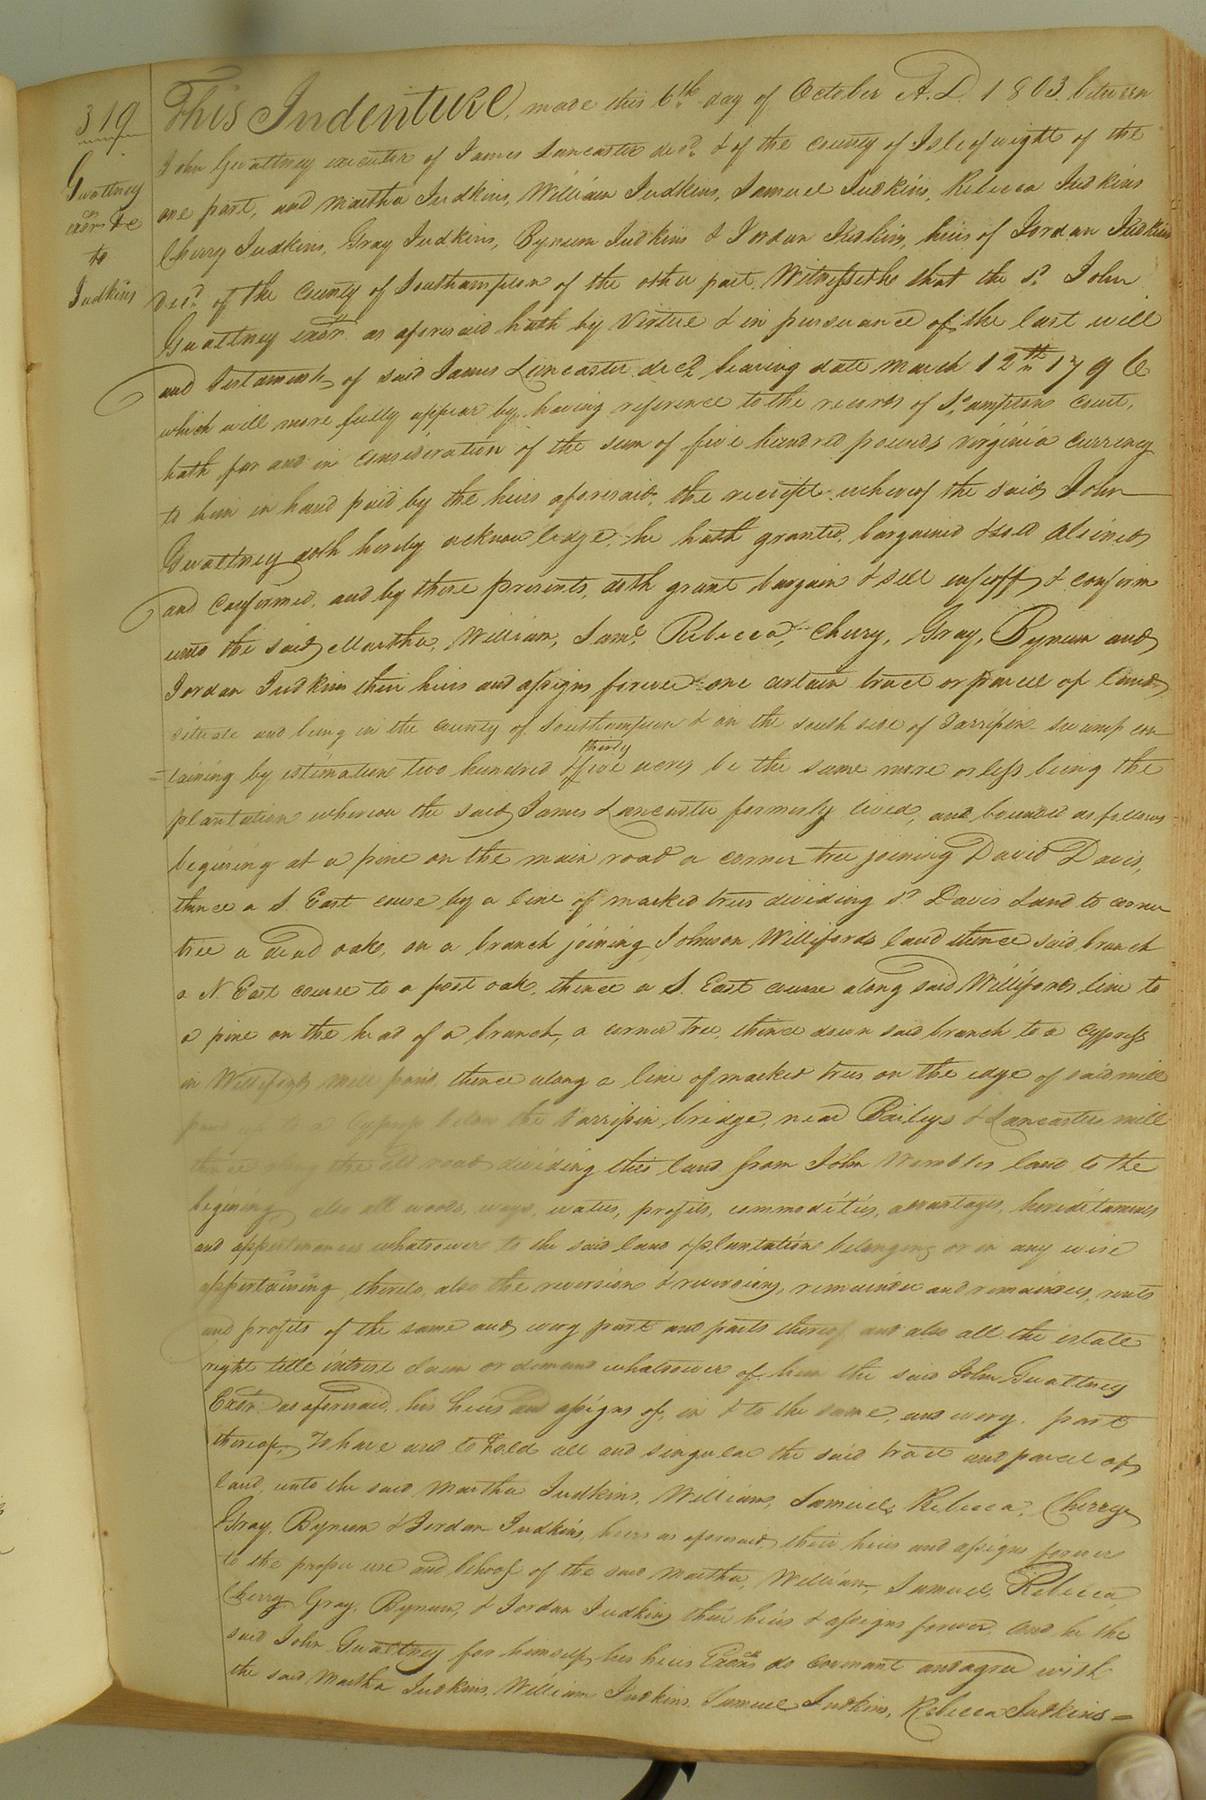 319
Gwattney
exōr &c
to
Judkins
This Indenture, made this 6.th day of October A.D. 1803. between
John Gwattney executor of James Lancaster decd. & of the county of Isle of wight of the
one part, and Martha Judkins, William Judkins, Samuel Judkins, Rebecca Judkins
Cherry Judkins, Gray Judkins, Bynum Judkins & Jordan Judkins, heirs of Jordan Judkins
Decd. of the County of Southampton of the other part. Witnesseth that the sd. John
Gwattney exōr. as aforesaid hath by Virtue & in pursuance of the last will
and testament of said James Lancaster decd. bearing date March 12th 1796
which will more fully appear by having reference to the records of So.ampton court,
hath for and in consideration of the sum of five hundred pounds virginia currency
to him in hand paid by the heirs aforesaid, the receipt whereof the said John
Gwattney doth hereby acknowledge, he hath granted, bargained & sold aliened
and confirmed, and by these presents, doth grant bargain & sell enfeoff & confirm
unto the said Martha, William, Saml. Rebecca, Cherry, Gray, Bynum and
Jordan Judkins their heirs and assigns forever one certain tract or parcel of land
situate and being in the county of Southampton & on the south side of Tarripin swamp con
=taining by estimation two hundred & thirty five acres be the same more or less being the
plantation whereon the said James Lancaster formerly lived, and bounded as follows
begining at a pine on the main road a corner tree joining David Davis,
thence a S. East course by a line of marked trees dividing sd. Davis Land to corner
tree a dead oak, on a branch joining Johnson Willifords land thence said branch
a N. East course to a post oak, thence a S. East course along said Willifords line to
a pine on the head of a branch, a corner tree, thence down said branch to a cypress
in Willifords mill pond, thence along a line of marked trees on the edge of said mill
pond to a cypress below the Tarripin bridge, near Baileys & Lancasters mill
thence along the old road dividing this land from John Wombles land to the
begining, also all woods, ways, waters, profits, commodities, advantages, hereditaments
and appertenances whatsoever to the said land & plantation belonging or in any wise
appertaining, thereto, also the reversion & reversions, remainder and remainders, rents
and profits of the same and every part and parts thereof and also all the estate
right title intrest claim or demand whatsoever of him the said John Gwattney
Exōr. as aforesaid, his heirs and assigns of, in & to the same, and every. part
thereof, To have and to hold all and singular the said tract and parcel of
land, unto the said Martha Judkins, William, Samuel, Rebecca, Cherry
Gray, Bynum & Jordan Judkins, heirs as aforesaid, their heirs and assigns forever
to the proper use and behoof of the said Martha, William, Samuel, Rebecca
Cherry, Gray, Bynum, & Jordan Judkins their heirs & assigns forever. and he the
said John Gwattney for himself, his heirs Exōrs &c do covenant and agree with
the said Martha Judkins, William Judkins, Samuel Judkins, Rebecca Judkins =